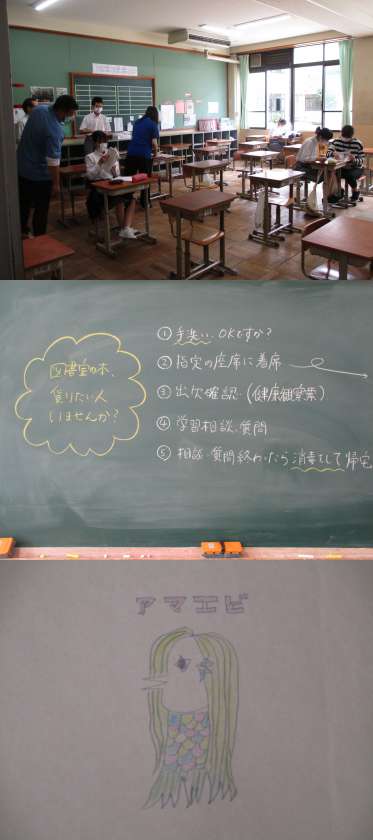 図書室の本、
借りたい人
いませんか？
① 手洗い、OKですか？
② 指定の座席に着席
③ 出欠確認・(健康観察業)
④ 学習相談、質問
⑤ 相談、質問終わったら消毒して帰宅
アマエビ